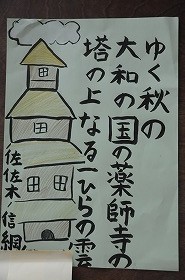 ゆく秋の
大和の国の薬師寺の
塔の上なる一ひらの雲
佐佐木信綱